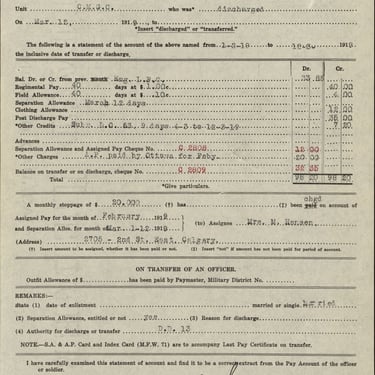 Unit C.M.G.C. who was* discharged
On Mar. 12, 1919 *Insert "discharged" or "transferred."
The following is a statement of the account of the above named from 1-2-19 to 12-3- 1919
the inclusive date of transfer or discharge,
Dr. Cr.
Bal. Dr. or Cr. from prev. month Eng. L.P.C. 33 85
Regimental Pay 40 days at $ 1.00c. 40 00
Field Allowance 40 days at $ .10c. 4 00
Separation Allowance March 12 days
Clothing Allowance 12 00
Post Discharge Pay 35 00
*Other Credits L.C. 63. 9 days 4-3 to 12-3-19 7 20
Advances
Separation Allowance and Assigned Pay Cheque No. C 2808 12 00
*Other Charges A.P. paid by Ottawa for Feby. 20 00
Balance on transfer or on discharge, cheque No. C 2809
Total 98 20 98 20
*Give particulars.
A monthly stoppage of $ 20.000 (†) has (‡) been paid on account of
chgd
Assigned Pay for the month of February 1919 (to) Assignee Mrs. M. Hansen
and Separation Allce. for month of Mar. 1-12 1919
(Address) 2705 - 2nd St. West, Calgary.
(†) Insert amount to be assigned, whether it has been paid or not. (‡) Insert "not" if amount has not been paid for period of account.
ON TRANSFER OF AN OFFICER.
Outfit Allowance of $ has been paid by Paymaster, Military District No.
REMARKS:—
State (1) date of enlistment married or single married
(2) Separation Allowance, entitled or not yes (3) Reason for discharge
(4) Authority for discharge or transfer D.D. 13
NOTE.—S.A. & A.P. Card and Index Card (M.F.W. 71) are to accompany Last Pay Certificate on transfer.
I have carefully examined this statement of account and find it to be a correct extract from the Pay Account of the officer
or soldier.